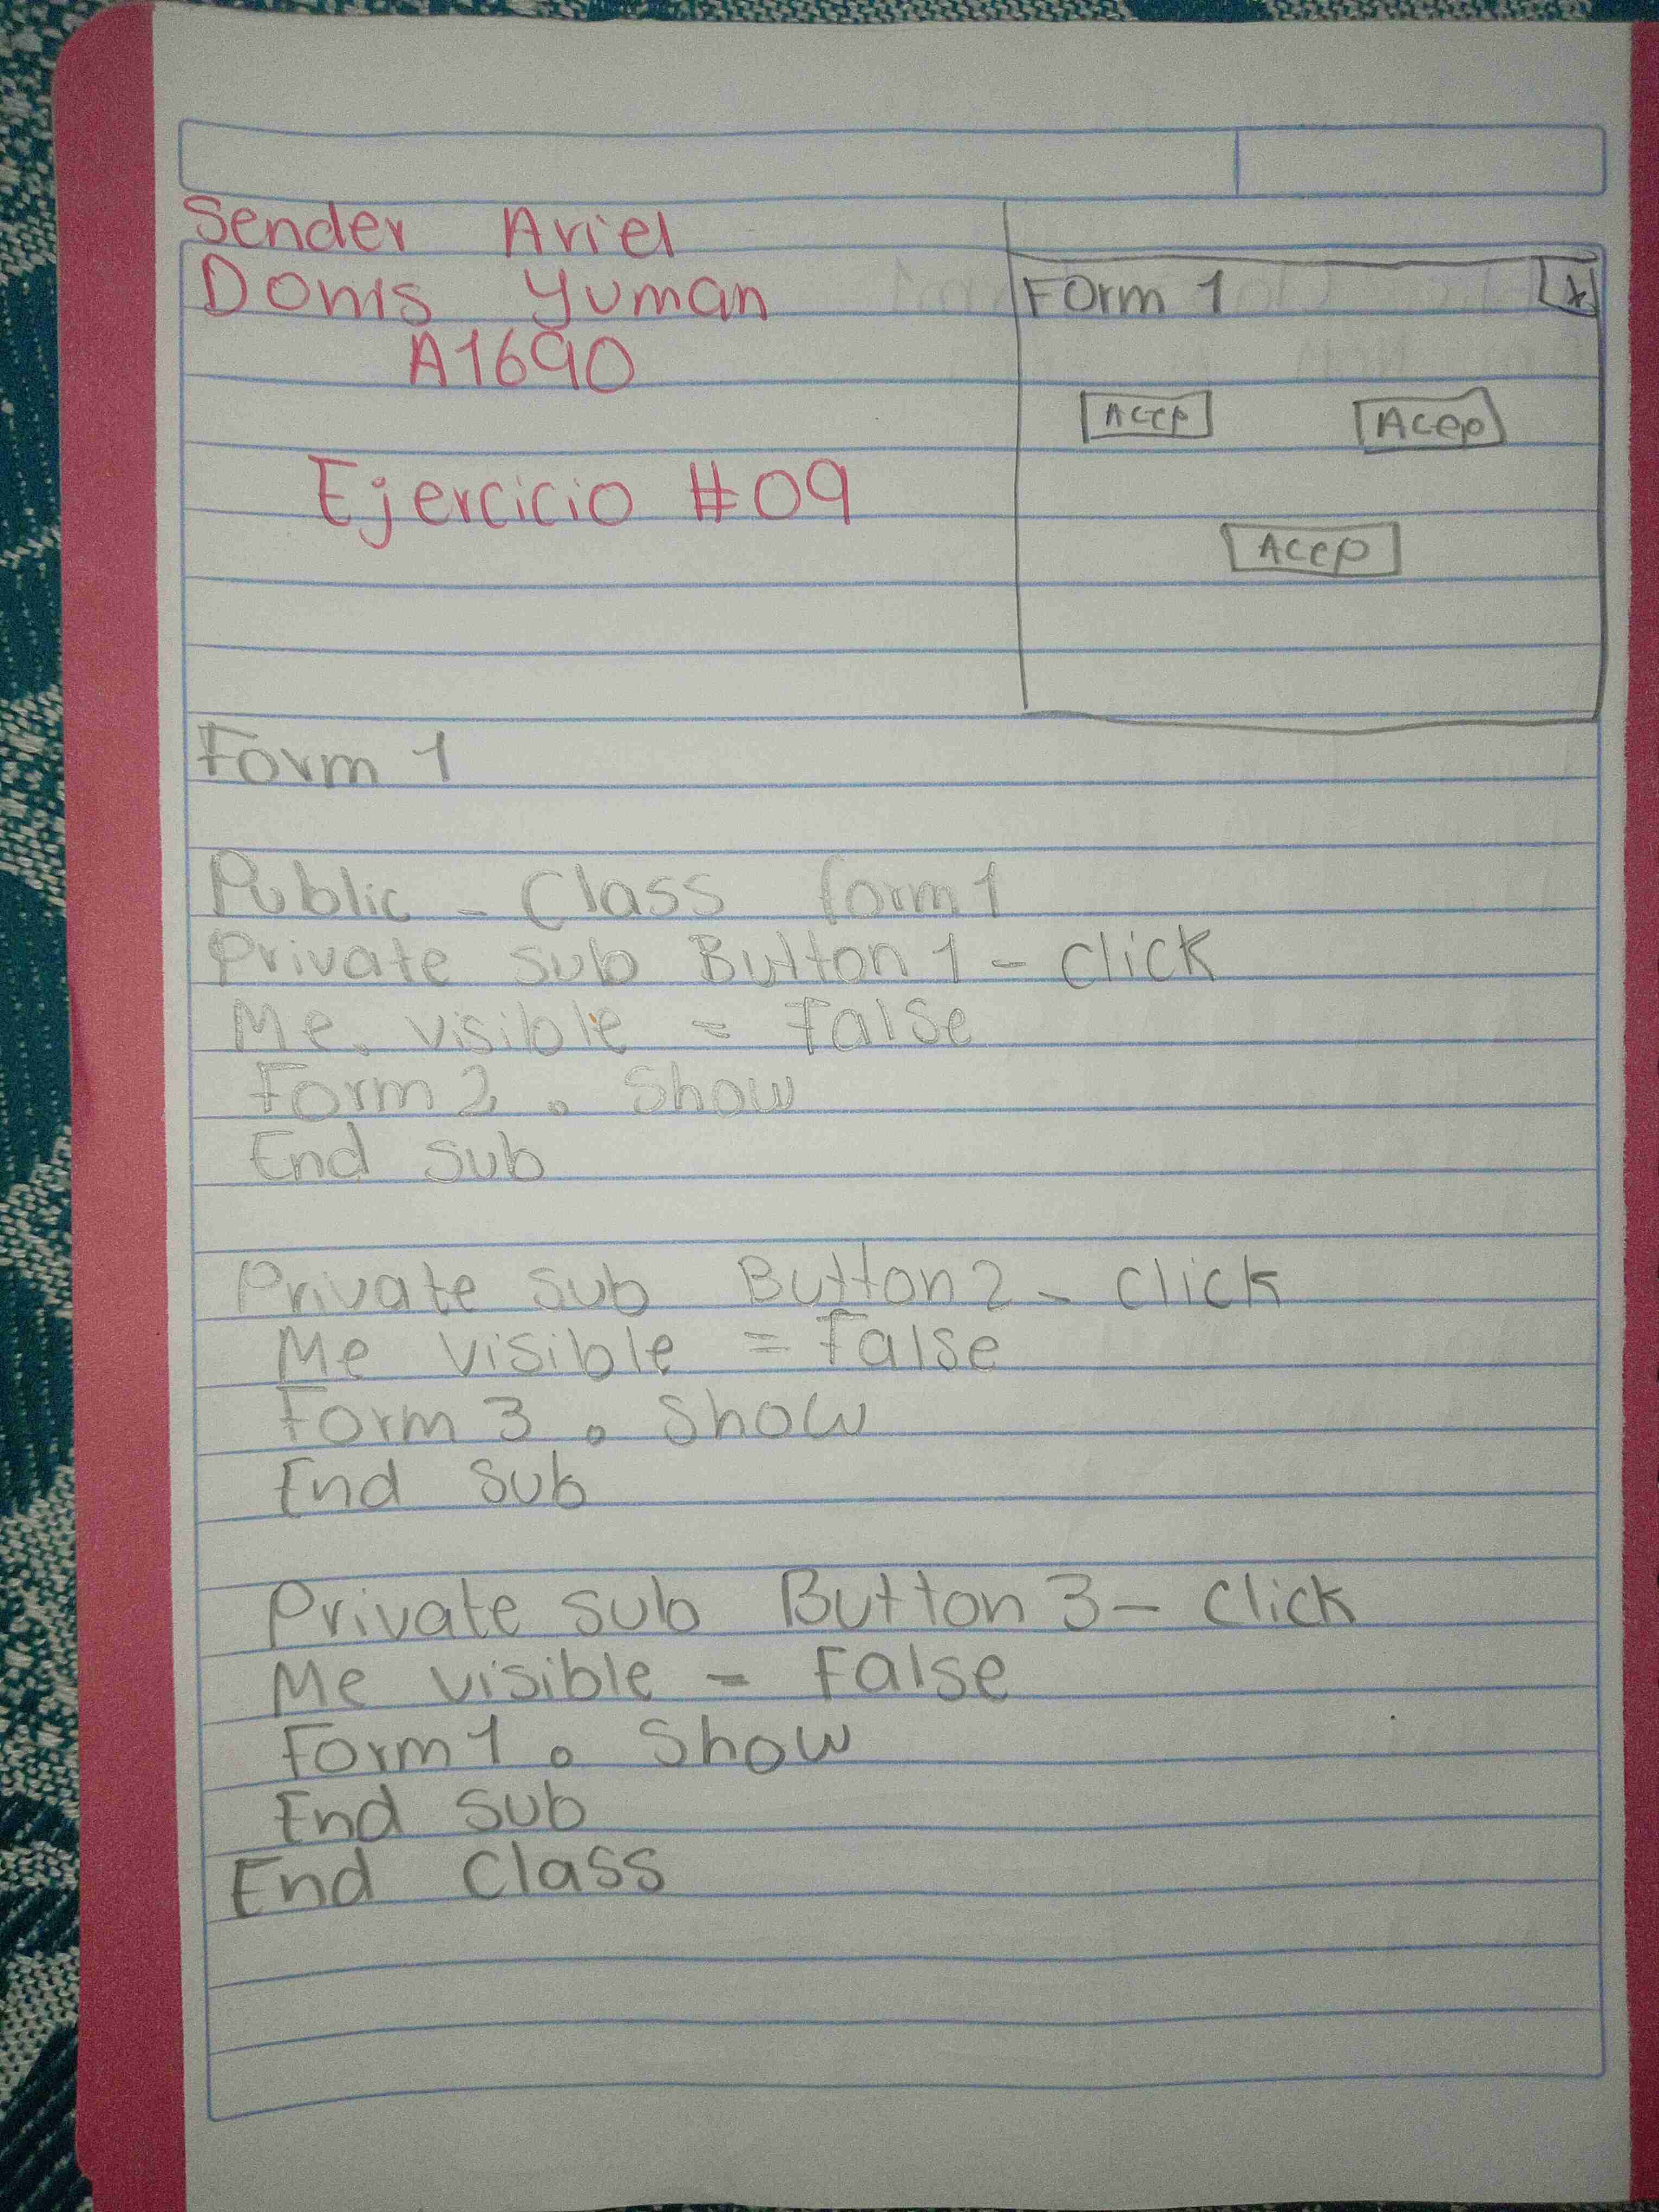 Sender Ariel
Donis Yuman
A1690
Ejercicio #09
Form 1 x
Acep Acep
Acep
Form 1
Public - Class form1
Private sub Button 1 - click
Me. visible = False
Form 2 . Show
End sub
Private sub Button 2 - click
Me visible = False
Form 3 . Show
End sub
Private sub Button 3 - click
Me visible = False
Form 1 . Show
End sub
End Class